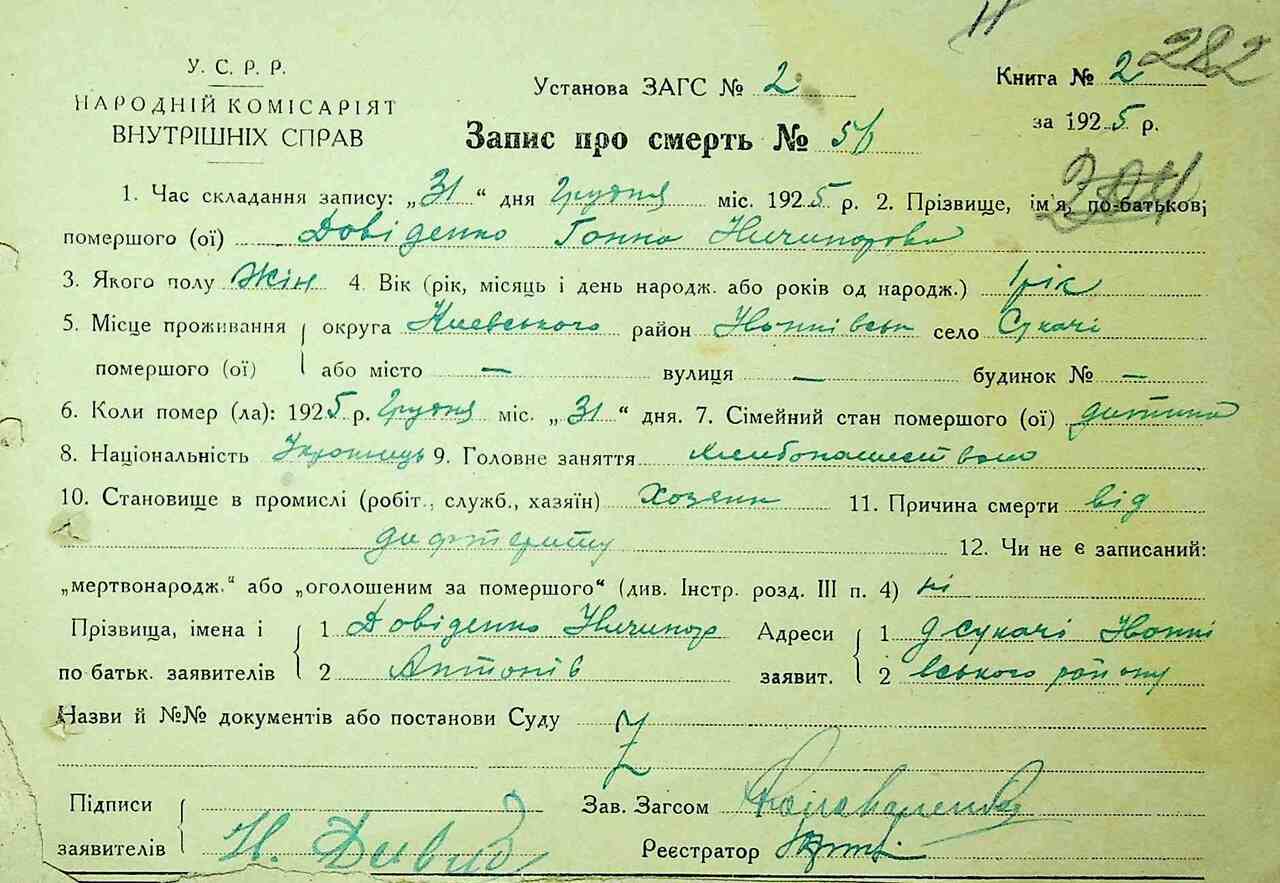 282
У. С. Р. Р.
НАРОДНІЙ КОМІСАРІЯТ
ВНУТРІШНІХ СПРАВ
Установа ЗАГС № 2
Книга № 2
за 1925 р.
Запис про смерть № 56
304
1. Час складання запису: „31“ дня Грудня міс. 1925 р. 2. Прізвище, ім'я, по-батькові
помершого (ої) Довіденко Ганна Ничипорова
3. Якого полу Жін 4. Вік (рік, місяць і день народж. або років од народж.) 1 рік
5. Місце проживання округа Киевського район село Сукачі
помершого (ої) або місто — вулиця — будинок № —
6. Коли помер (ла): 1925 р. Грудня міс. „31“ дня. 7. Сімейний стан помершого (ої) дитина
8. Національність Українець 9. Головне заняття хлебопашество
10. Становище в промислі (робіт., служб., хазяїн) Хозяин 11. Причина смерти від
дифтериту 12. Чи не є записаний:
„мертвонародж.“ або „оголошеним за помершого“ (див. Інстр. розд. III п. 4) ні
Прізвища, імена і 1 Довіденко Ничипор Адреси 1 Сукачі
по батьк. заявителів 2 Антонів заявит. 2 вського району
Назви й №№ документів або постанови Суду
Підписи Зав. Загсом
заявителів Н. Давид Реєстратор